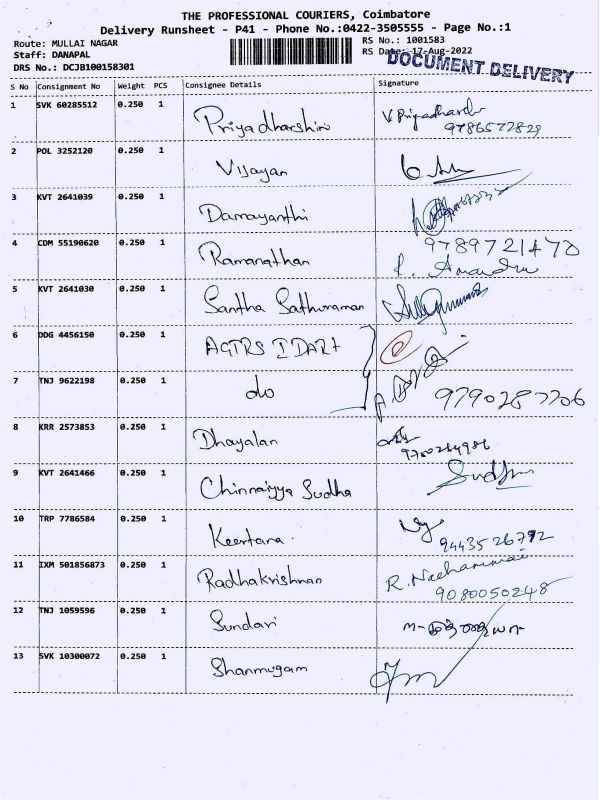 THE PROFESSIONAL COURIERS, Coimbatore
Delivery Runsheet - P41 - Phone No.:0422-3505555 - Page No.:1
Route: MULLAI NAGAR RS No.: 1001583
Staff: DANAPAL RS Date: 17-Aug-2022
DRS No.: DCJB100158301 DOCUMENT DELIVERY
S No Consignment No Weight PCS Consignee Details Signature
1 SVK 60285512 0.250 1 Priyadharshini V Priyadharsh
9786577829
2 POL 3252120 0.250 1 Vijayan
3 KVT 2641039 0.250 1 Damayanthi
4 CDM 55190620 0.250 1 Ramanathan 9789721470
5 KVT 2641030 0.250 1 Santha Sathuraman
6 DDG 4456150 0.250 1 AGTRS IDART
7 TNJ 9622198 0.250 1 do 9790287706
8 KRR 2573853 0.250 1 Dhayalan
9 KVT 2641466 0.250 1 Chinnaiyya Sudha
10 TRP 7786584 0.250 1 Keertana. 9443526792
11 IXM 501856873 0.250 1 Radhakrishnan R. Nachammai
9080050248
12 TNJ 1059596 0.250 1 Sundari
13 SVK 10300072 0.250 1 Shanmugam